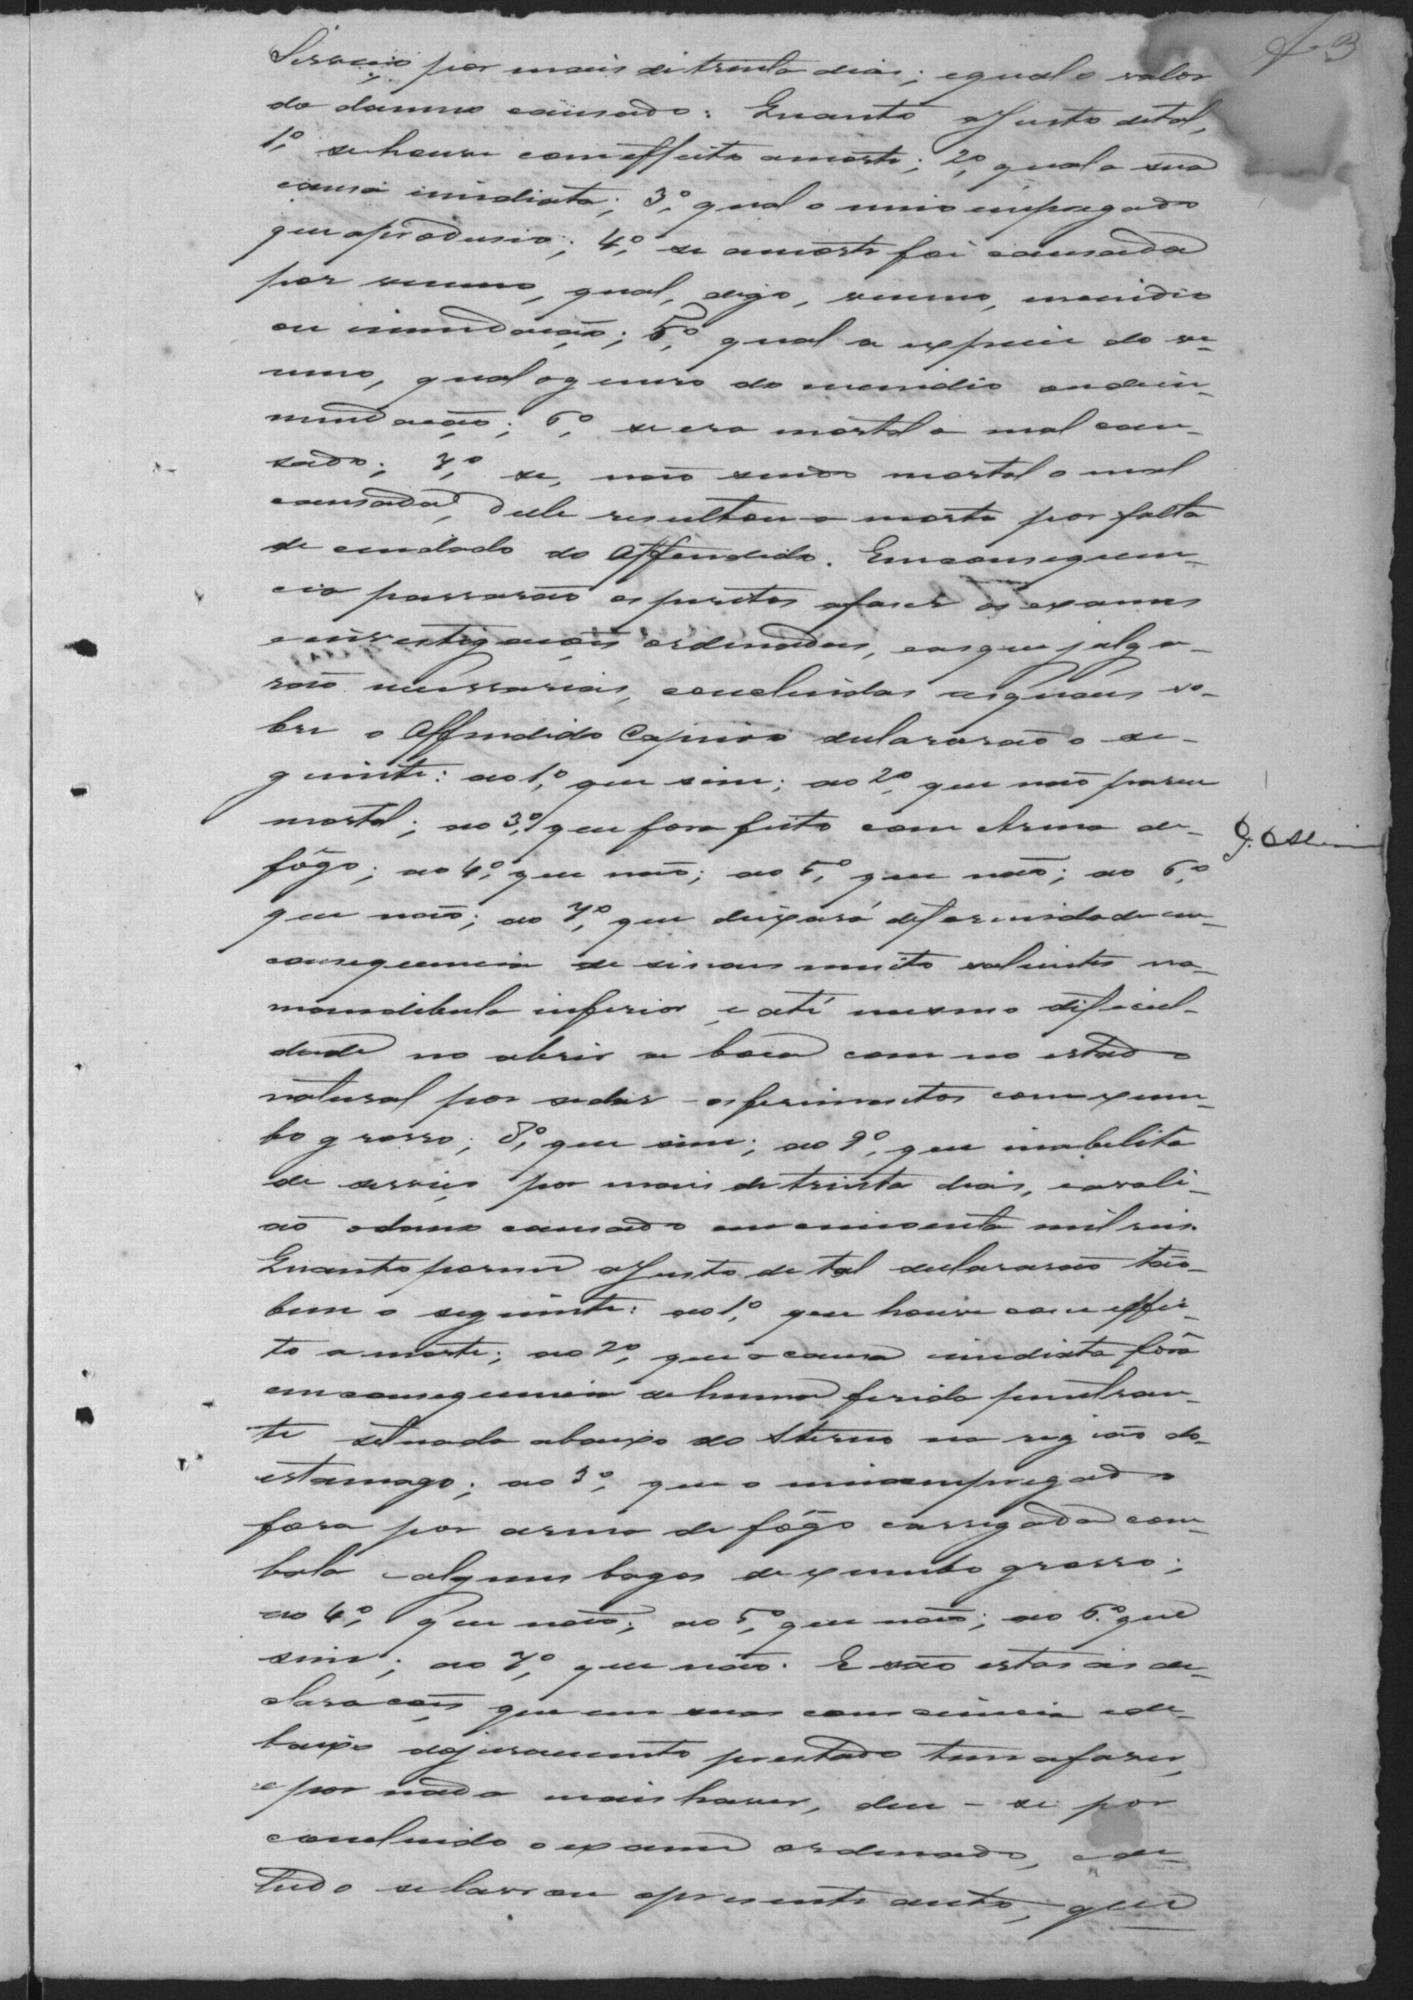 f 3
Serviço por mais de trinta dias; e qual o valor
do damno causado: Quanto a Justo de tal,
1º, se houve com effeito a morte; 2º, qual a sua
causa imidiata; 3º, qual o meio empregado
que a produsio; 4º, se a morte foi causada
por veneno, qual, digo, veneno, incendio
ou inundação; 5º, qual a especie do ve-
neno, qual o genero do incendio ou da in-
nundação; 6º, se era mortal o mal cau-
sado; 7º, se, não sendo mortal o mal
causado, delle resultou a morte por falta
de cuidado do Offendido. Em consequen-
cia passarão os peritos a faser os exames
e investigações ordenadas, e as que julga-
rão necessarias, concluidas as quaes so-
bre o Offendido Cypriano declararão o se-
guinte: ao 1º, que sim; ao 2º, que não parece
mortal; ao 3º, que fora feito com Arma de-
fôgo; ao 4º, que não; ao 5º, que não; ao 6º,
que não; ao 7º, que deixará deformidade em
consequencia de sinaes muito salientes na
mandibula inferior, e até mesmo dificul-
dade no abrir a boca como no estado
natural por se dar os ferimentos com xum-
bo grosso; 8º, que sim; ao 9º, que inabilita
de serviço por mais de trinta dias, e avali-
ão o damno causado em cincoenta mil reis.
Quanto porem a Justo de tal declararão tão-
bem o seguinte: ao 1º, que houve com effei-
to a morte; ao 2º, que a causa imidiata fôra
em consequencia de huma ferida penetran-
te situada abaixo do Sterno na região do
estamago; ao 3º, que o meio empregado
fora por arma de fôgo carregada com
bala e alguns bagos de xumbo grosso;
ao 4º, que não; ao 5º, que não; ao 6º que
sim; ao 7º, que não. E são estas as de-
claracões que em suas consciencia e de-
baixo do juramento prestado tem a faser,
e por nada mais haver, deu-se por
concluido o exame ordenado, e de
tudo se lavrou o presente auto, que